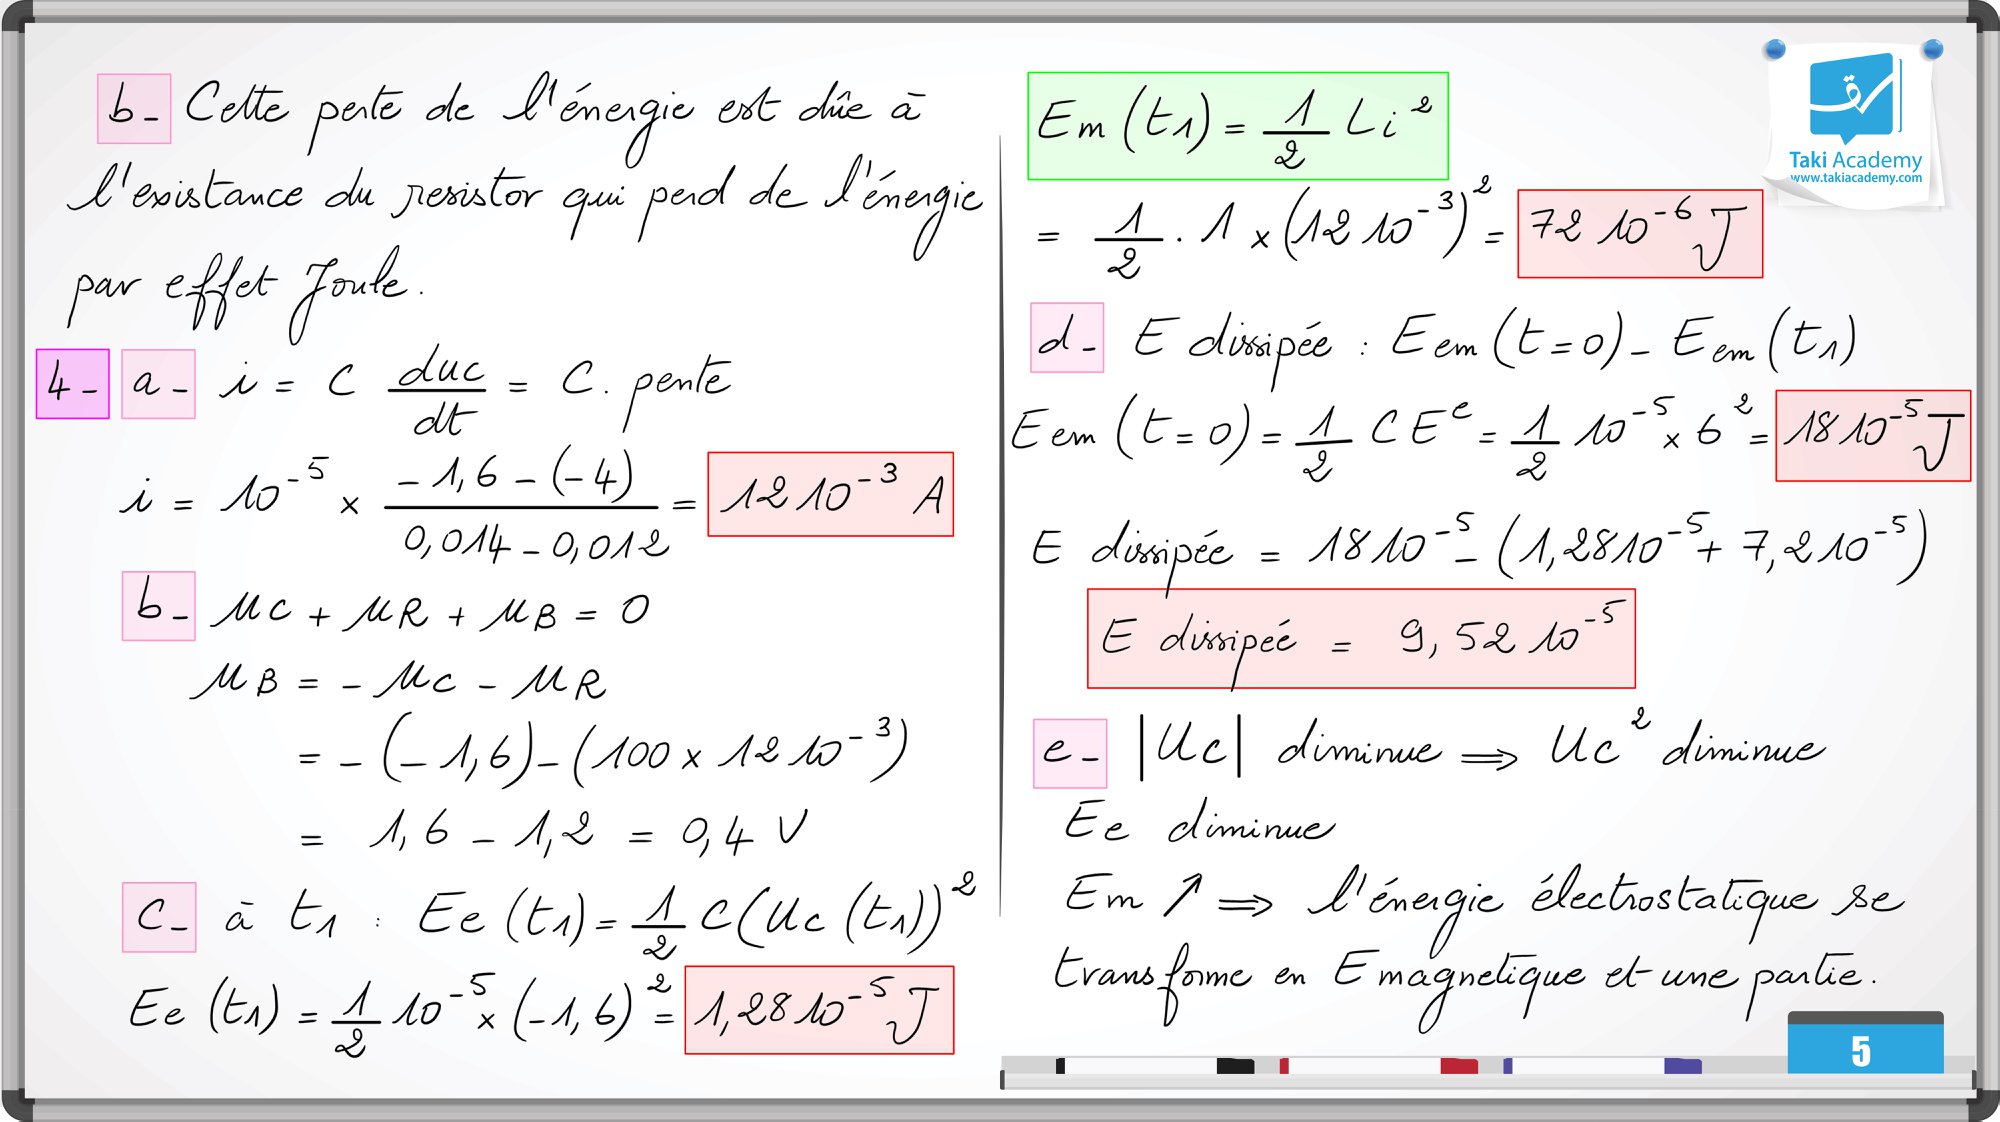 b- Cette perte de l'énergie est dûe à
l'existance du resistor qui perd de l'énergie
par effet Joule.
4- a- i = C duc/dt = C. pente
i = 10⁻⁵ × (-1,6 - (-4))/(0,014 - 0,012) = 12 10⁻³ A
b- uC + uR + uB = 0
uB = - uC - uR
= - (-1,6) - (100 × 12 10⁻³)
= 1,6 - 1,2 = 0,4 V
C- à t1 : Ee (t1) = 1/2 C(Uc (t1))²
Ee (t1) = 1/2 10⁻⁵ × (-1,6)² = 1,28 10⁻⁵ J
Em (t1) = 1/2 Li²
= 1/2 . 1 × (12 10⁻³)² = 72 10⁻⁶ J
d- E dissipée : Eem (t=0) - Eem (t1)
Eem (t=0) = 1/2 CEᵉ = 1/2 10⁻⁵ × 6² = 18 10⁻⁵ J
E dissipée = 18 10⁻⁵ - (1,28 10⁻⁵ + 7,2 10⁻⁵)
E dissipeé = 9,52 10⁻⁵
e- |Uc| diminue ⟹ Uc² diminue
Ee diminue
Em ↗ ⟹ l'énergie électrostatique se
transforme en E magnetique et une partie.
Taki Academy
www.takiacademy.com
5